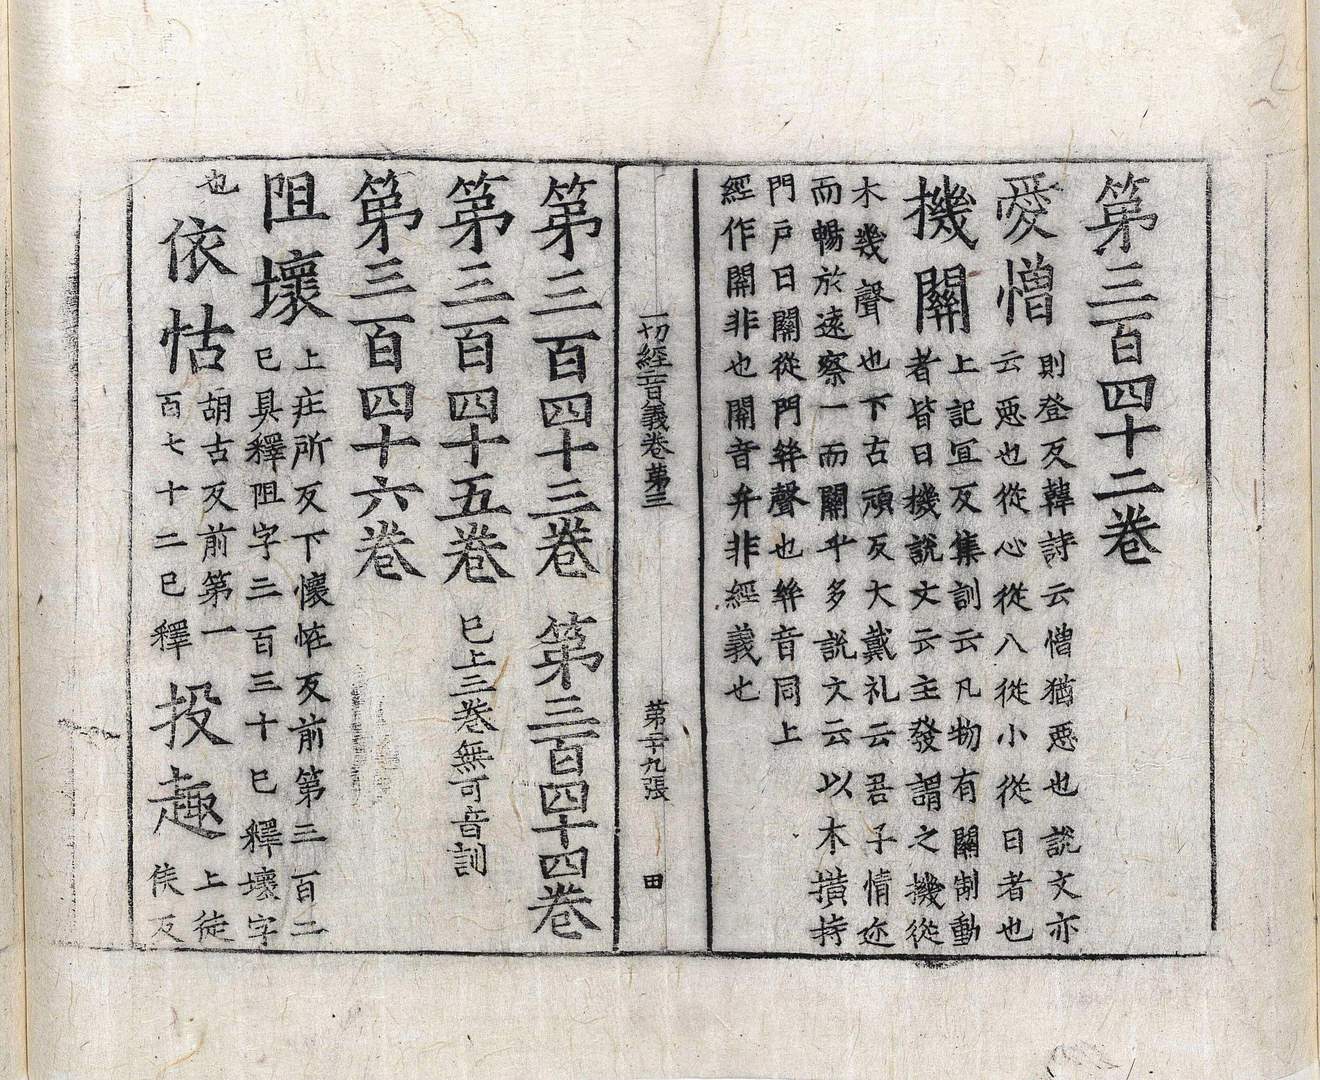 第三百四十二卷
愛憎
則登反韓詩云憎猶惡也說文亦
云惡也從心從八從小從日者也
機關
上記冝反集訓云凡物有關制動
者皆曰機說文云主發謂之機從
木幾聲也下古頑反大戴礼云吾子情迩
而暢於遠察一而關乎多說文云以木撗持
門戶曰關從門𢇇聲也𢇇音同上
經作開非也開音弁非經義也
一切經音義卷第三 第二十九張 田
第三百四十三卷 第三百四十四卷
第三百四十五卷 巳上三卷無可音訓
第三百四十六卷
阻壞
上莊所反下懷恠反前第三百二
巳具釋阻字三百三十巳釋壞字
也
依怙
胡古反前第一
百七十二巳釋
投趣
上徒
侯反